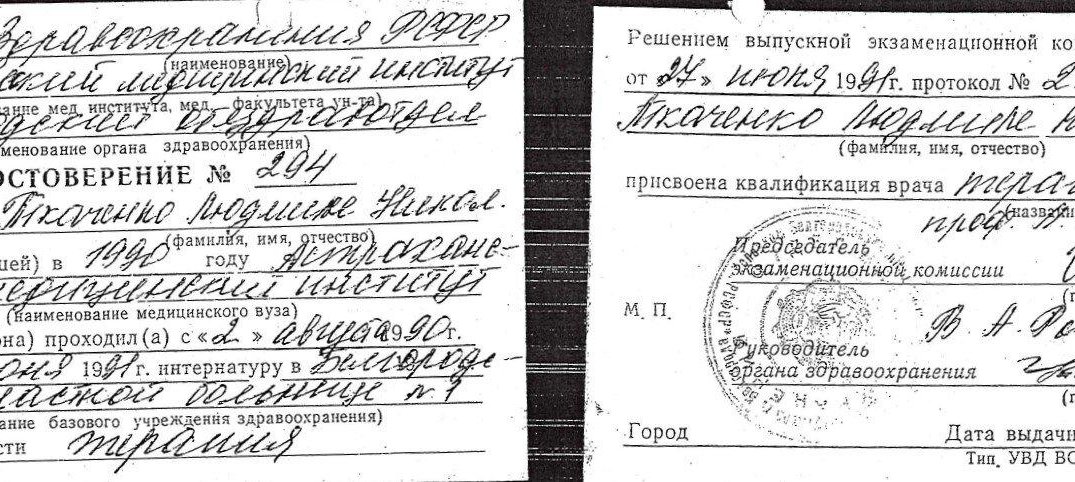 Здравоохранения РСФСР
(наименование)
ский медицинский институт
вание мед института, мед. факультета ун-та)
дский отдел
именование органа здравоохранения)
ОСТОВЕРЕНИЕ № 294
Ткаченко Людмиле Никол.
(фамилия, имя, отчество)
шей) в 1990 году Астрахан-
медицинский институт
(наименование медицинского вуза)
она) проходил(а) с «2» августа 1990г.
юня 1991г. интернатуру в Белгородс-
ластной больнице №1
вание базового учреждения здравоохранения)
сти терапия
Решением выпускной экзаменационной ко
от «27» июня 1991г. протокол № 2
Ткаченко Людмиле
(фамилия, имя, отчество)
присвоена квалификация врача терап
(названи
проф.
Председатель
экзаменационной комиссии
М. П.
В. А.
Руководитель
органа здравоохранения
Город Дата выдачи
Тип. УВД ВО